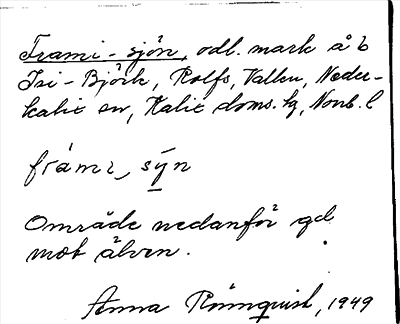 Frami-sjön, odl. mark å b
Isi-Björk, Rolfs, Vallen, Neder-
kalix sn, Kalix doms. hg, Norrb. l
frámɪ, sýn
Område nedanför gd
mot älven.
Anna Rönnquist, 1949